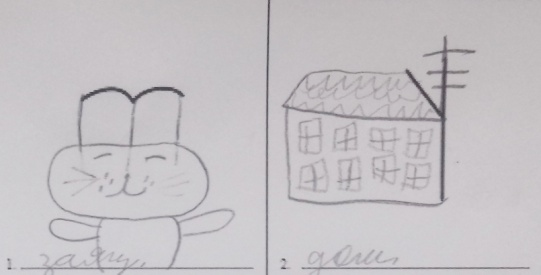 1. заяц.
2. дом.